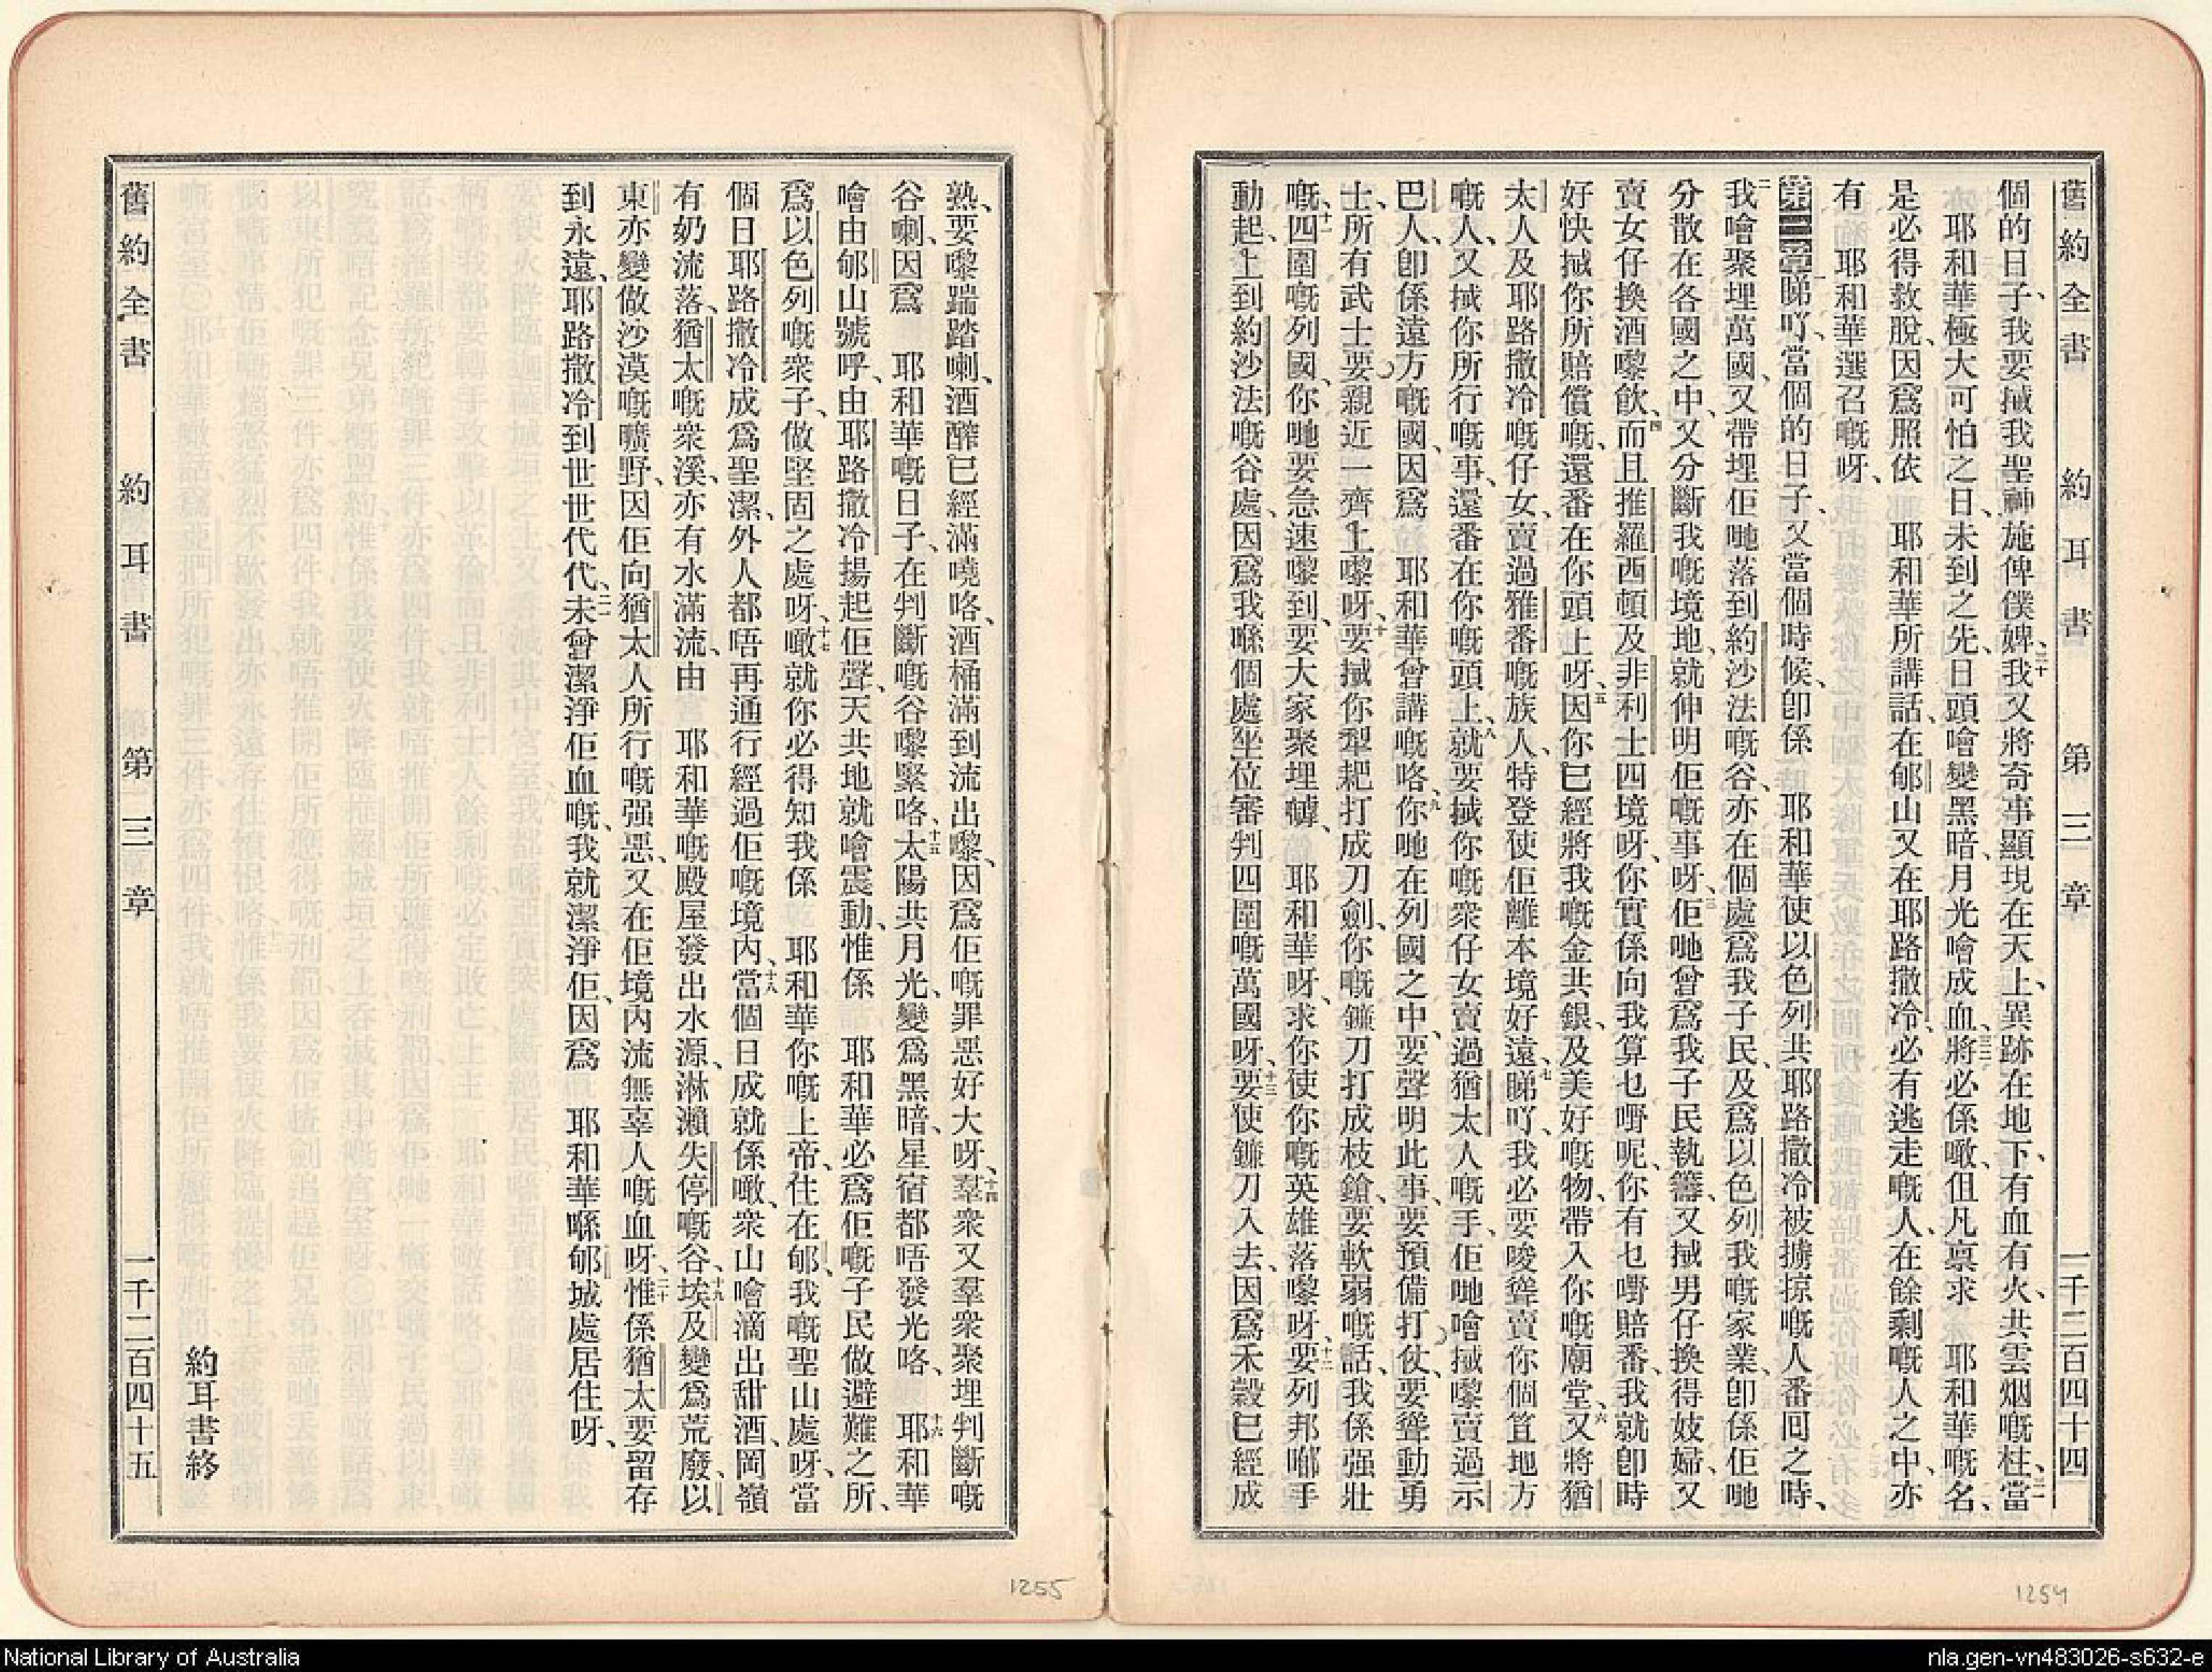 舊約全書 約耳書 第三章 一千二百四十四
個的日子、我要搣我聖神施俾僕婢、三十我又將奇事顯現在天上、異跡在地下、有血有火、共雲烟嘅柱、三一當
耶和華極大可怕之日、未到之先、日頭噲變黑暗、月光噲成血、三二將必係噉、但凡禀求 耶和華嘅名、
是必得救脫、因爲照依 耶和華所講話、在郇山又在耶路撒冷、必有逃走嘅人、在餘剩嘅人之中、亦
有 耶和華選召嘅呀、
第三章 一睇吖、當個的日子、又當個時候、卽係 耶和華使以色列共耶路撒冷被擄掠嘅人番囘之時、
二我噲聚埋萬國、又帶埋佢哋落到約沙法嘅谷、亦在個處爲我子民、及爲以色列我嘅家業、卽係佢哋
分散在各國之中、又分斷我嘅境地、就伸明佢嘅事呀、三佢哋曾爲我子民執籌、又搣男仔換得妓婦、又
賣女仔換酒嚟飲、四而且推羅西頓及非利士四境呀、你實係向我算乜嘢呢、你有乜嘢賠番、我就卽時
好快搣你所賠償嘅、還番在你頭上呀、五因你已經將我嘅金共銀、及美好嘅物、帶入你嘅廟堂、六又將猶
太人及耶路撒冷嘅仔女、賣過雅番嘅族人、特登使佢離本境好遠、七睇吖、我必要唆聳賣你個笪地方
嘅人、又搣你所行嘅事、還番在你嘅頭上、八就要搣你嘅衆仔女賣過猶太人嘅手、佢哋噲搣嚟賣過示
巴人、卽係遠方嘅國、因爲 耶和華曾講嘅咯、九你哋在列國之中、要聲明此事、要預備打仗、要聳動勇
士、所有武士要親近一齊上嚟呀、十要搣你犁耙打成刀劍、你嘅鐮刀打成枝鎗、要軟弱嘅話、我係强壯
嘅、十一四圍嘅列國、你哋要急速嚟到、要大家聚埋𡃈、 耶和華呀、求你使你嘅英雄落嚟呀、十二要列邦嘟手
動起、上到約沙法嘅谷處、因爲我喺個處坐位審判四圍嘅萬國呀、十三要使鐮刀入去、因爲禾穀已經成
舊約全書 約耳書 第三章 一千二百四十五
熟、要嚟踹踏喇、酒醡已經滿嘵咯、酒桶滿到流出嚟、因爲佢嘅罪惡好大呀、十四羣衆又羣衆聚埋判斷嘅
谷喇、因爲 耶和華嘅日子、在判斷嘅谷嚟緊咯、十五太陽共月光、變爲黑暗、星宿都唔發光咯、 十六耶和華
噲由郇山號呼、由耶路撒冷揚起佢聲、天共地就噲震動、惟係 耶和華必爲佢嘅子民做避難之所、
爲以色列嘅衆子、做堅固之處呀、十七噉就你必得知我係 耶和華你嘅上帝、住在郇我嘅聖山處呀、當
個日耶路撒冷成爲聖潔、外人都唔再通行經過佢嘅境內、十八當個日成就係噉、衆山噲滴出甜酒、岡嶺
有奶流落、猶太嘅衆溪、亦有水滿流、由 耶和華嘅殿屋發出水源、淋瀨失停嘅谷、十九埃及變爲荒廢、以
東亦變做沙漠嘅曠野、因佢向猶太人所行嘅强惡、又在佢境內流無辜人嘅血呀、二十惟係猶太要留存
到永遠、耶路撒冷到世世代代、二一未曾潔淨佢血嘅、我就潔淨佢、因爲 耶和華喺郇城處居住呀、
約耳書終
1255
1254
National Library of Australia
nla.gen-vn483026-s632-e